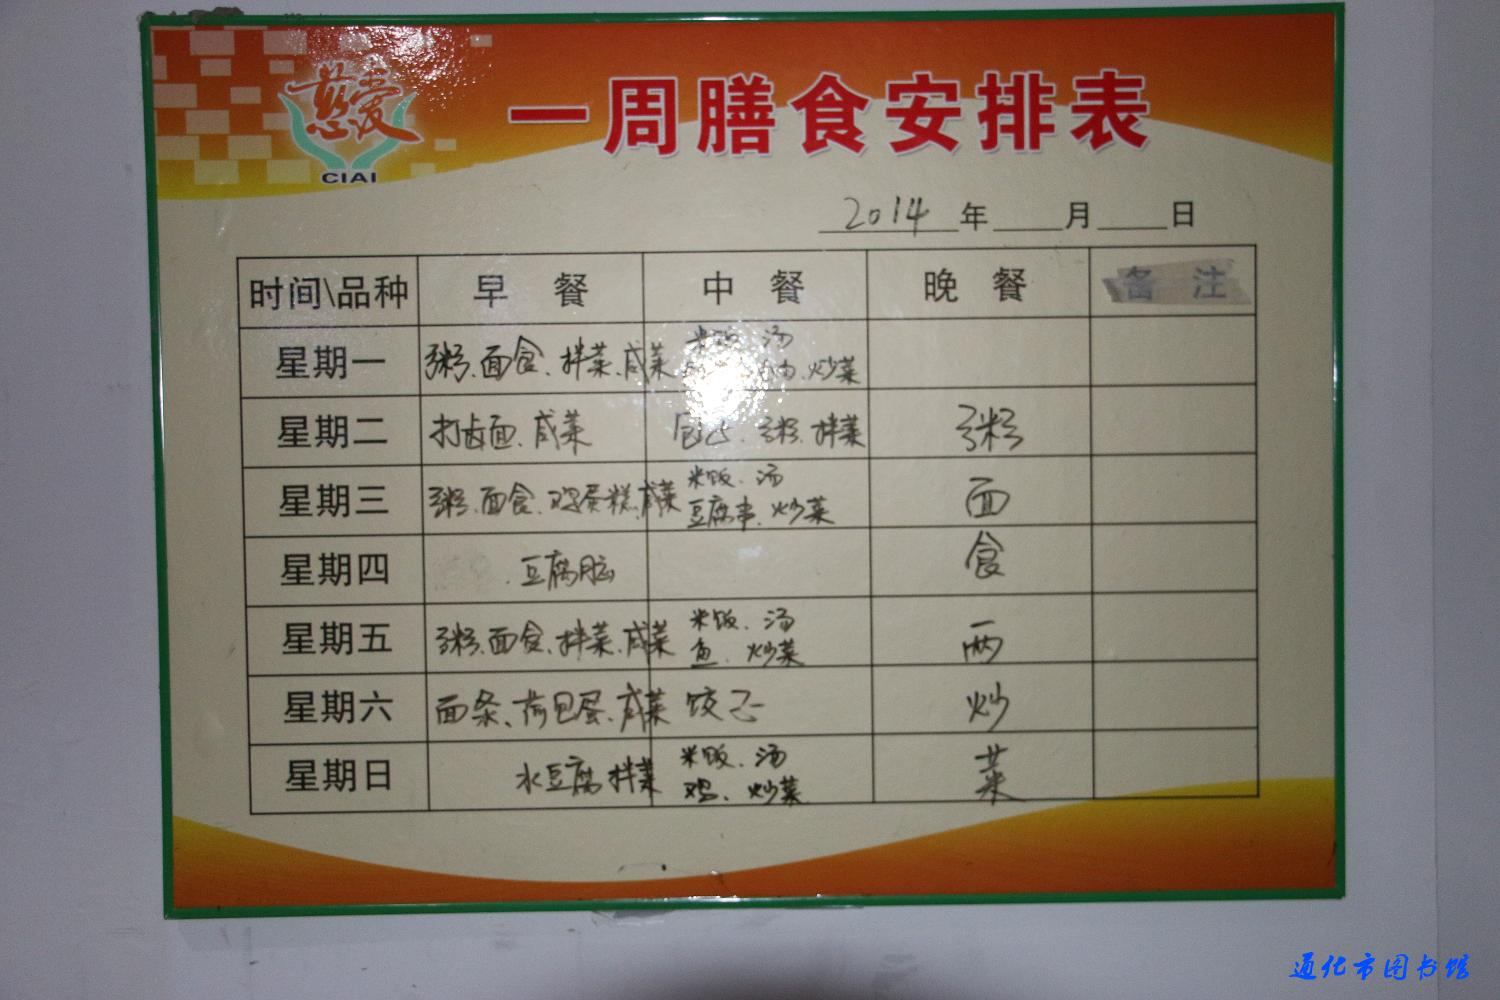 慈爱
CIAI
一周膳食安排表
2014年 月 日
时间\品种 早餐 中餐 晚餐 备注
星期一 粥、面食、拌菜、咸菜 米饭、汤
炒菜
星期二 打卤面、咸菜 包子、粥、拌菜 粥
星期三 粥、面食、鸡蛋糕、咸菜 米饭、汤 面
豆腐串、炒菜
星期四 豆腐脑 食
星期五 粥、面食、拌菜、咸菜 米饭、汤 两
鱼、炒菜
星期六 面条、荷包蛋、咸菜 饺子 炒
星期日 水豆腐 拌菜 米饭、汤 菜
鸡、炒菜
通化市图书馆